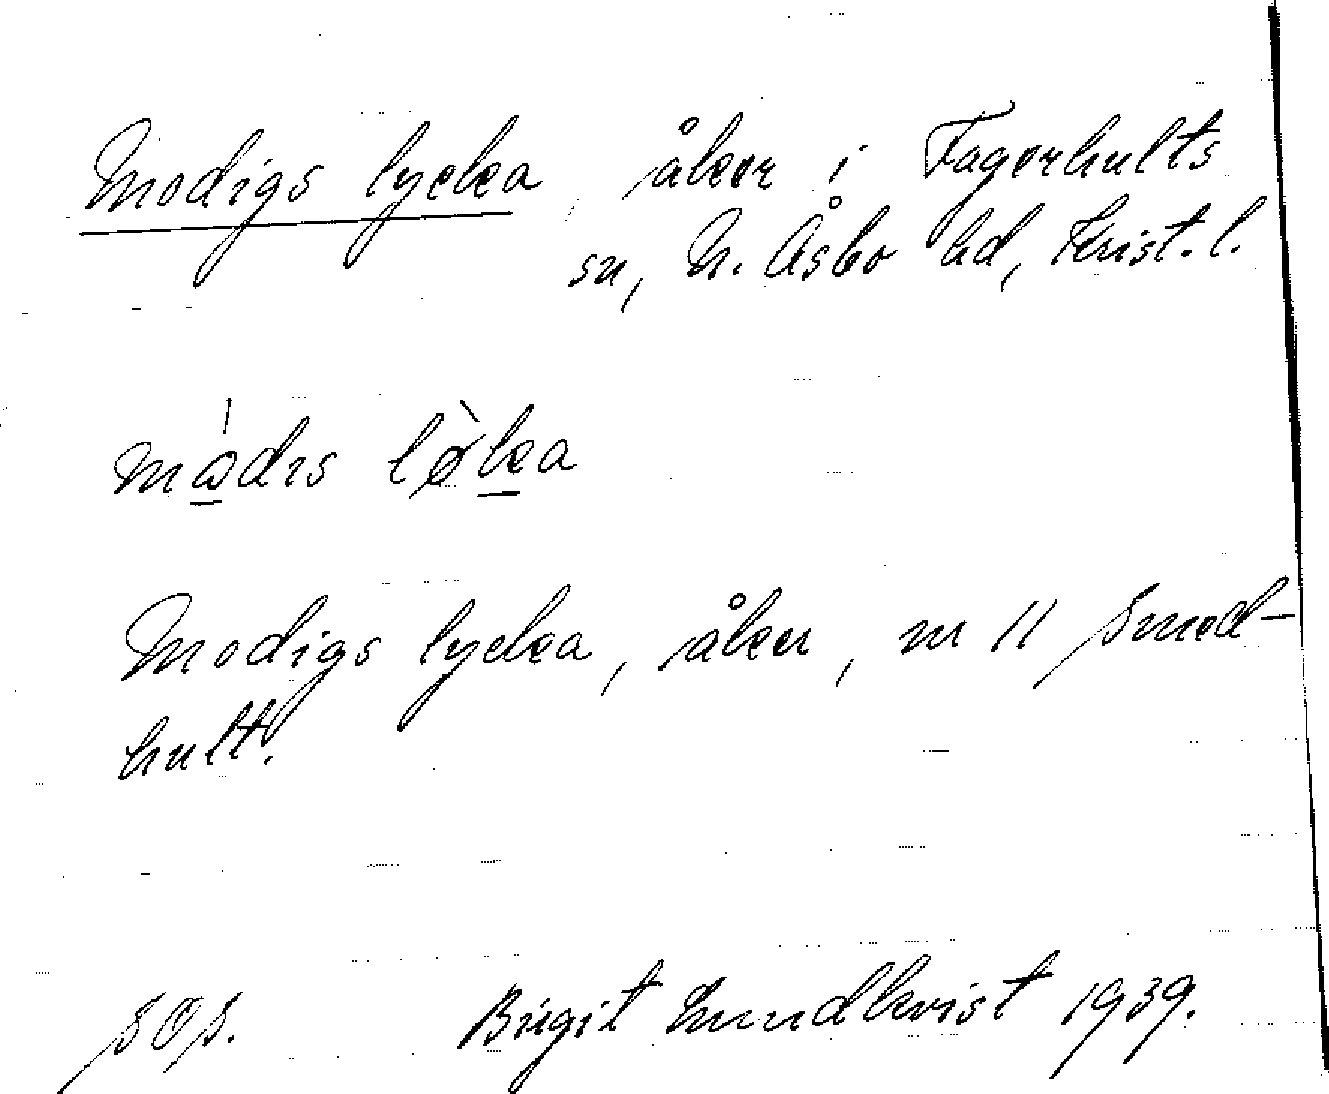 Modigs lycka, åker i Fagerhults
sn, N. Åsbo hd, Krist. l.
Modigs lycka, åker, nr 11 Smed-
hult.
SOS. Birgit Lundkvist 1939.